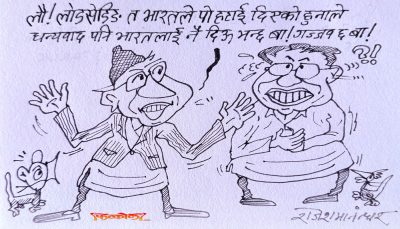 लौ! लोडसेडिङ त भारतले पो हटाई दिएको हुनाले
धन्यवाद पनि भारतलाई नै दिऊ भन्छ बा! गज्जब छ बा!
?!
राजेश मानन्धर